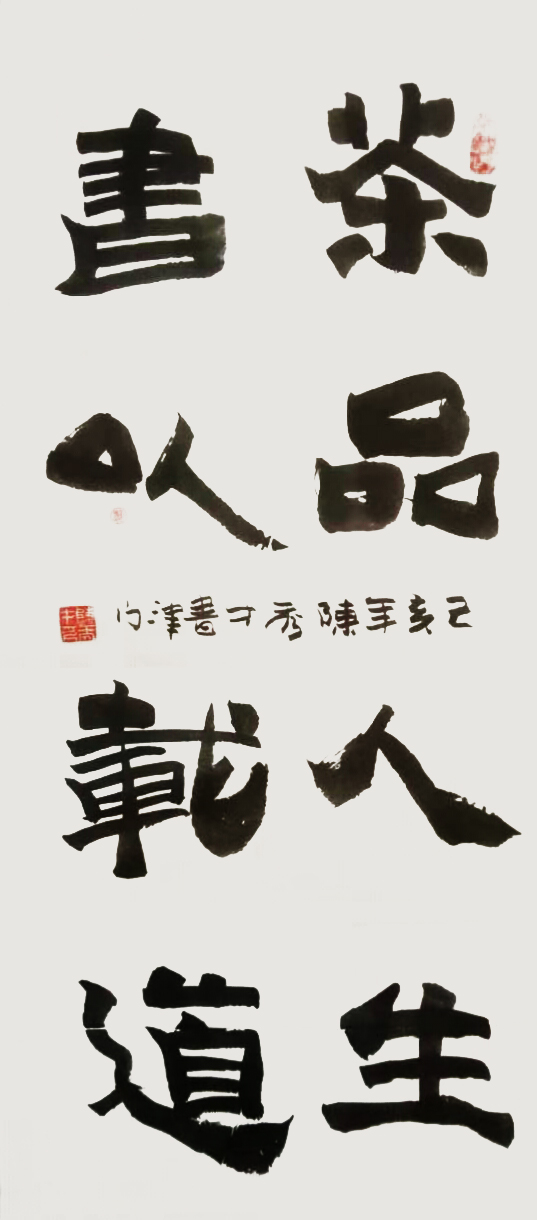 茶品人生
書以載道
己亥年陳秀才書津门